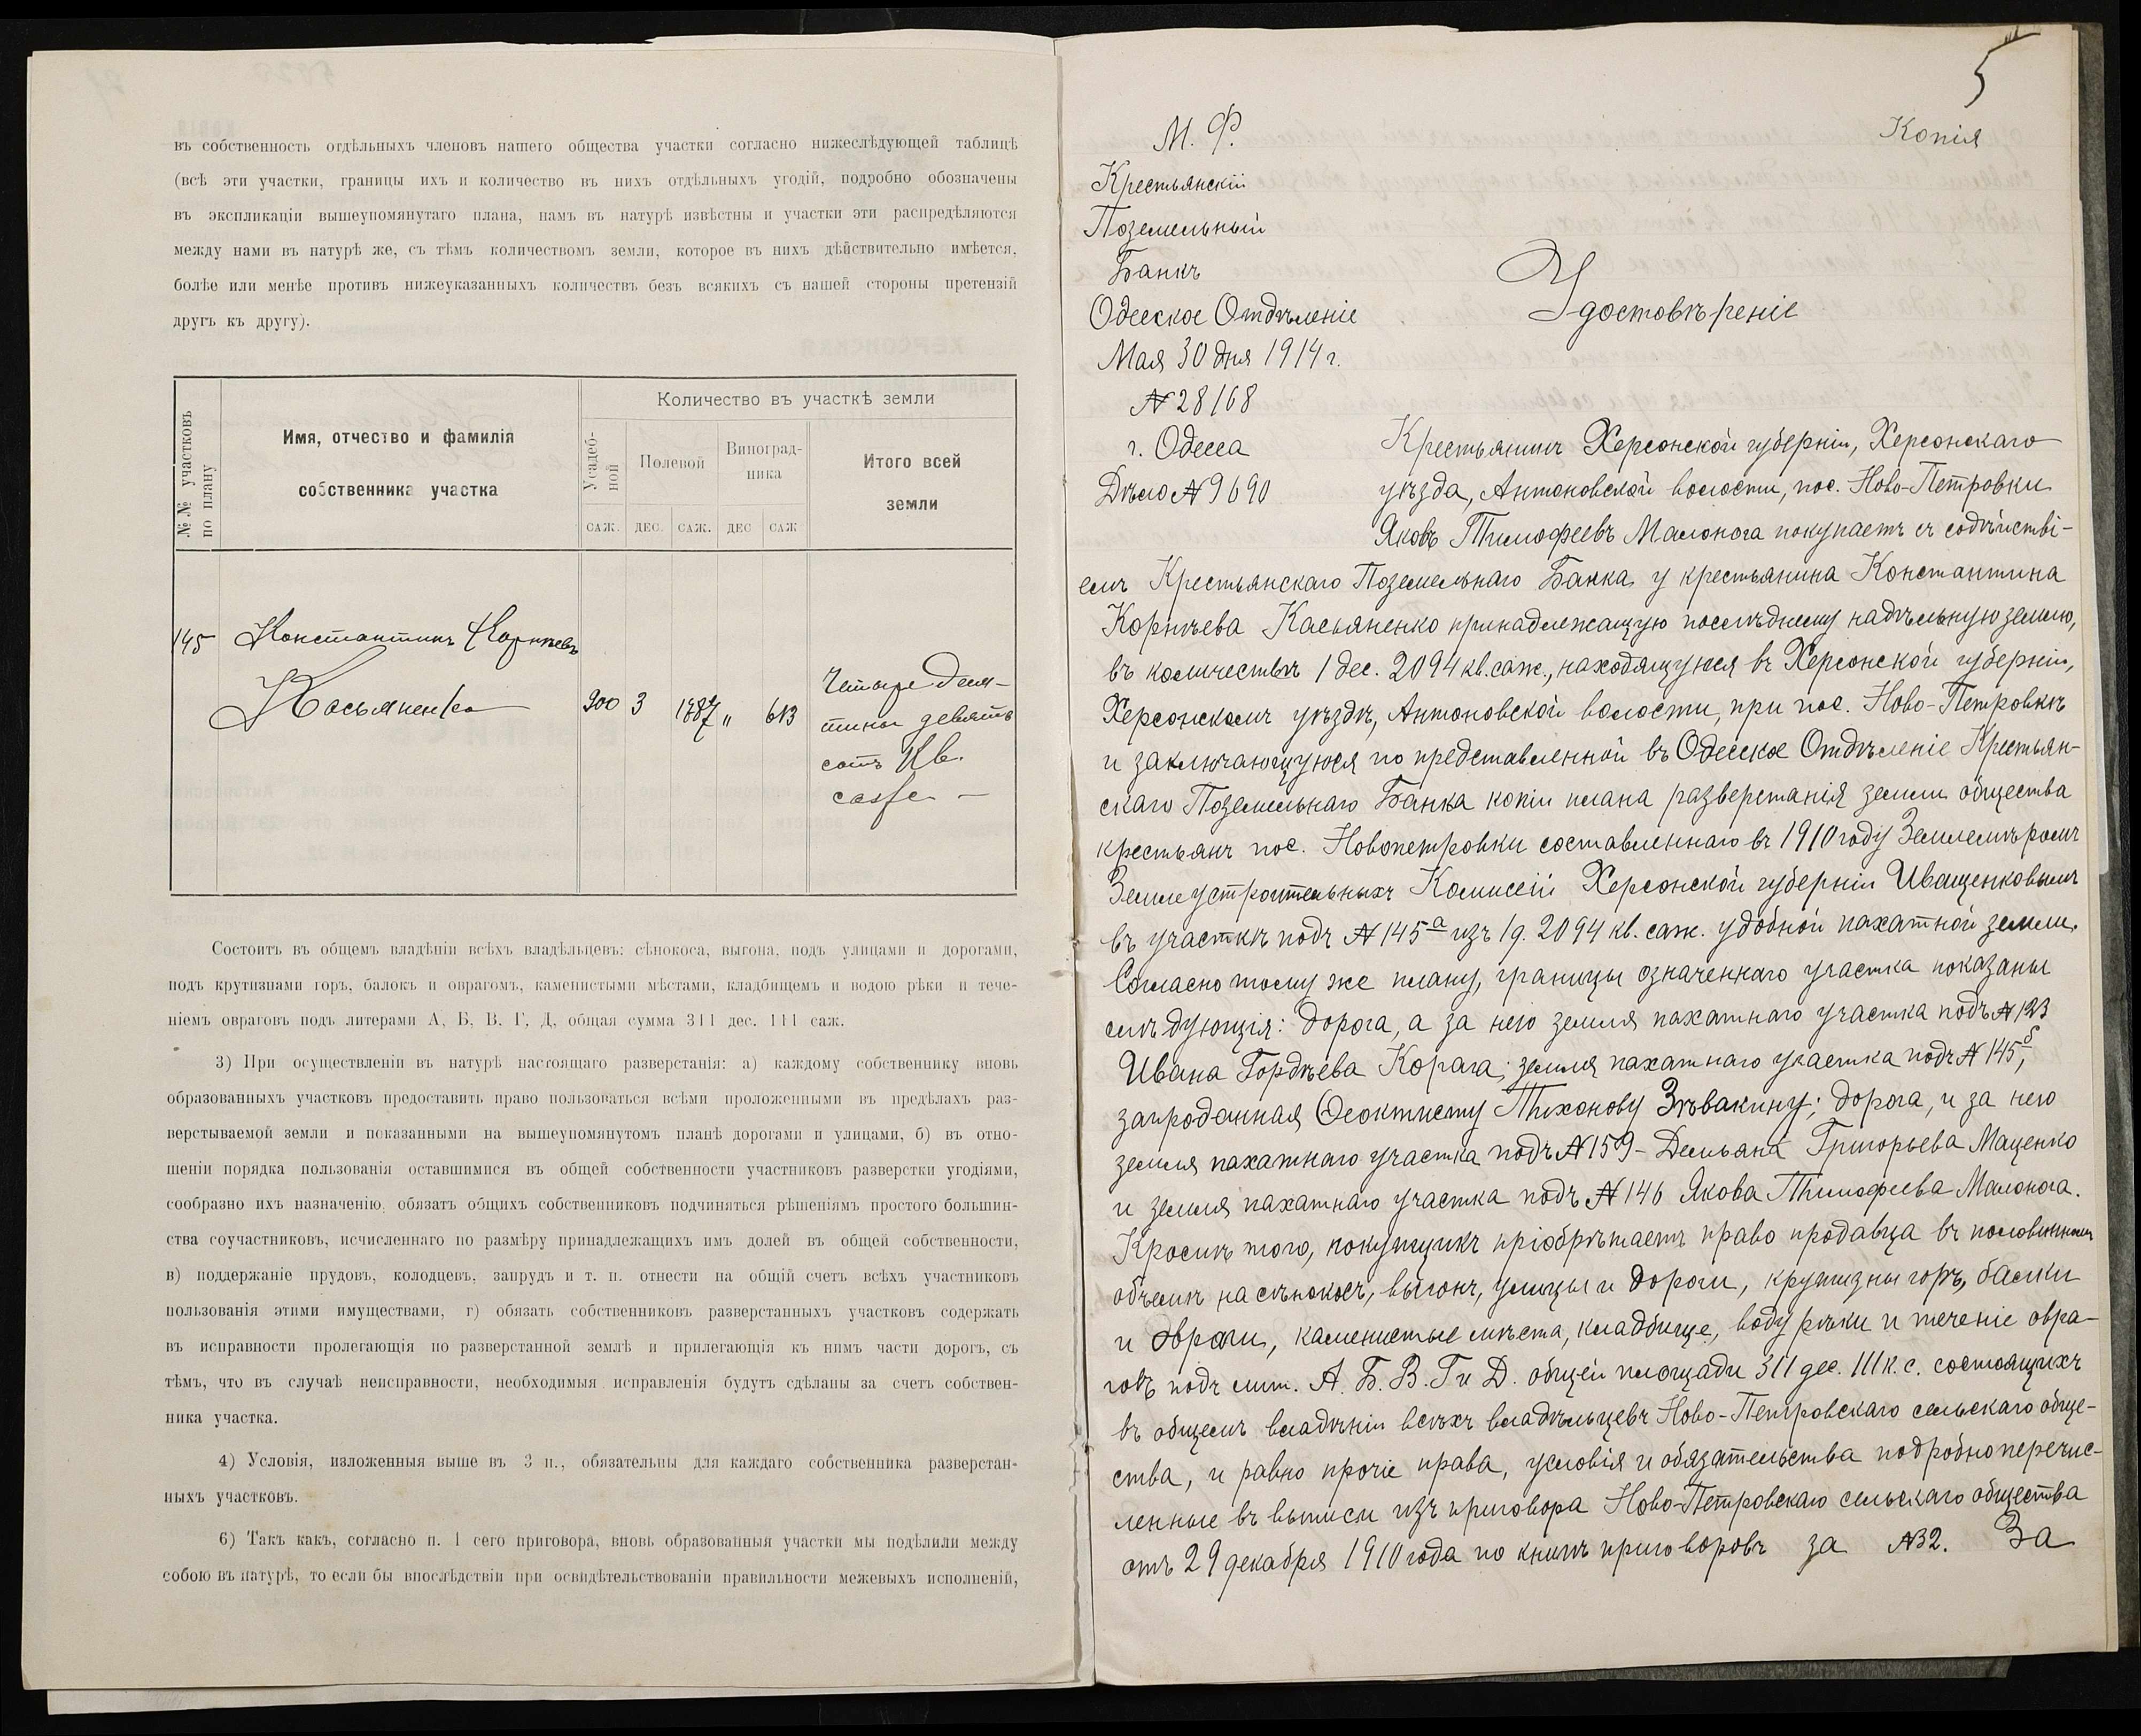 въ собственность отдѣльныхъ членовъ нашего общества участки согласно нижеслѣдующей таблицѣ
(всѣ эти участки, границы ихъ и количество въ нихъ отдѣльныхъ угодій, подробно обозначены
въ экспликаціи вышеупомянутаго плана, намъ въ натурѣ извѣстны и участки эти распредѣляются
между нами въ натурѣ же, съ тѣмъ количествомъ земли, которое въ нихъ дѣйствительно имѣется,
болѣе или менѣе противъ нижеуказанныхъ количествъ безъ всякихъ съ нашей стороны претензій
другъ къ другу).
№№ участковъ по плану
Имя, отчество и фамилія
собственника участка
Количество въ участкѣ земли
Усадеб-
ной
Полевой
Виноград-
ника
Итого всей
земли
саж. дес. саж. дес саж
145 Константинъ Корнѣевъ
Касьяненко 300 3 1887 „ 613
Четыре деся-
тины девять
сотъ кв.
саж. —
Состоитъ въ общемъ владѣніи всѣхъ владѣльцевъ: сѣнокоса, выгона, подъ улицами и дорогами,
подъ крутизнами горъ, балокъ и оврагомъ, каменистыми мѣстами, кладбищемъ и водою рѣки и тече-
ніемъ овраговъ подъ литерами А, Б, В, Г, Д, общая сумма 311 дес. 111 саж.
3) При осуществленіи въ натурѣ настоящаго разверстанія: а) каждому собственнику вновь
образованныхъ участковъ предоставить право пользоваться всѣми проложенными въ предѣлахъ раз-
верстываемой земли и показанными на вышеупомянутомъ планѣ дорогами и улицами, б) въ отно-
шеніи порядка пользованія оставшимися въ общей собственности участниковъ разверстки угодіями,
сообразно ихъ назначенію, обязать общихъ собственниковъ подчиняться рѣшеніямъ простого большин-
ства соучастниковъ, исчисленнаго по размѣру принадлежащихъ имъ долей въ общей собственности,
в) поддержаніе прудовъ, колодцевъ, запрудъ и т. п. отнести на общій счетъ всѣхъ участниковъ
пользованія этими имуществами, г) обязать собственниковъ разверстанныхъ участковъ содержать
въ исправности пролегающія по разверстанной землѣ и прилегающія къ нимъ части дорогъ, съ
тѣмъ, что въ случаѣ неисправности, необходимыя исправленія будутъ сдѣланы за счетъ собствен-
ника участка.
4) Условія, изложенныя выше въ 3 п., обязательны для каждаго собственника разверстан-
ныхъ участковъ.
6) Такъ какъ, согласно п. 1 сего приговора, вновь образованныя участки мы подѣлили между
собою въ натурѣ, то если бы впослѣдствіи при освидѣтельствованіи правильности межевыхъ исполненій,
5
Копія
М. Ф.
Крестьянскій
Поземельный
Банкъ
Одесское Отдѣленіе
Мая 30 дня 1914 г.
№ 28168
г. Одесса
Дѣло № 9690
Удостовѣреніе
Крестьянинъ Херсонской губерніи, Херсонскаго
уѣзда, Антоновской волости, пос. Ново-Петровки
Яковъ Тимофеевъ Малонога покупаетъ съ содѣйстві-
емъ Крестьянскаго Поземельнаго Банка у крестьянина Константина
Корнѣева Касьяненко принадлежащую послѣднему надѣльную землю,
въ количествѣ 1 дес. 2094 кв. саж., находящуюся въ Херсонской губерніи,
Херсонскомъ уѣздѣ, Антоновской волости, при пос. Ново-Петровкѣ
и заключающуюся по представленной въ Одесское Отдѣленіе Крестьян-
скаго Поземельнаго Банка копіи плана разверстанія земли общества
крестьянъ пос. Новопетровки составленнаго въ 1910 году Землемѣромъ
Землеустроительныхъ Комиссій Херсонской губерніи Иващенковымъ
въ участкѣ подъ № 145а изъ 1 д. 2094 кв. саж. удобной пахатной земли.
Согласно тому же плану, границы означеннаго участка показаны
слѣдующія: дорога, а за нею земля пахатнаго участка подъ № 123
Ивана Гордѣева Корага; земля пахатнаго участка подъ № 145б,
запроданная Феоктисту Тихонову Звѣвакину; дорога, и за нею
земля пахатнаго участка подъ № 159 - Демьяна Григорьева Маценко
и земля пахатнаго участка подъ № 146 Якова Тимофеева Малонога.
Кромѣ того, покупщикъ пріобрѣтаетъ право продавца въ половинномъ
объемѣ на сѣнокосъ, выгонъ, улицы и дороги, крутизны горъ, балки
и овраги, каменистые мѣста, кладбище, воду рѣки и теченіе овра-
говъ подъ лит. А. Б. В. Г и Д. общей площади 311 дес. 111 к. с. состоящихъ
въ общемъ владѣніи всѣхъ владѣльцевъ Ново-Петровскаго сельскаго обще-
ства, и равно прочіе права, условія и обязательства подробно перечис-
ленные въ выписи изъ приговора Ново-Петровскаго сельскаго общества
отъ 29 декабря 1910 года по книгѣ приговоровъ за № 32. За